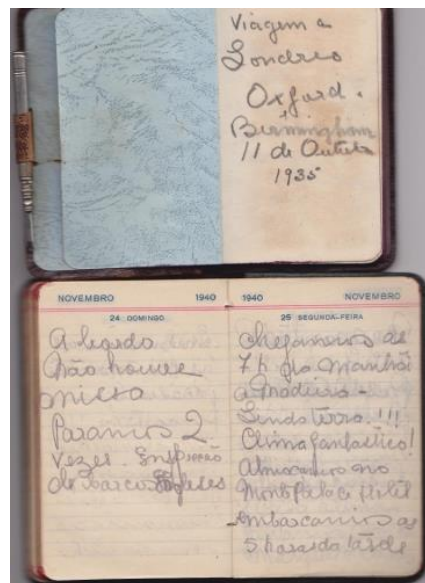 Viagem a
Londres
Oxford.
Birmingham
11 de Outubro
1935
NOVEMBRO 1940
24 DOMINGO
A bordo
Não houve
missa
Paramos 2
vezes. Inspecção
de barcos Ingleses
1940 NOVEMBRO
25 SEGUNDA-FEIRA
Chegamos às
7 h pla manhã
a Madeira -
Linda terra!!!
Clima fantastico!
Almoçamos no
Mont Palace Hotel
embarcamos as
5 horas da tarde